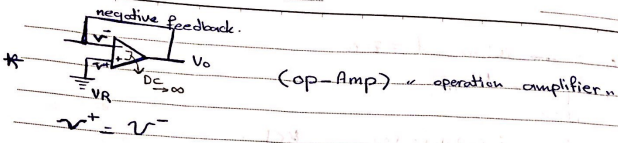 negative feedback.
V⁻
V⁺
Vo
DC → ∞
VR
(op-Amp) " operation amplifier "
V⁺ = V⁻